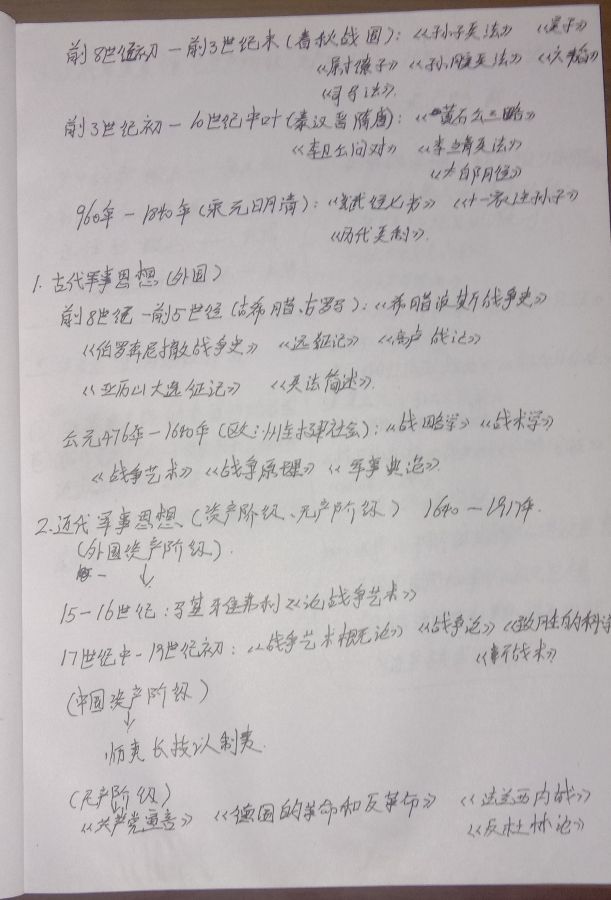 前8世纪初—前3世纪末(春秋战国):《孙子兵法》 《吴子》
《尉缭子》《孙膑兵法》《六韬》
《司马法》.
前3世纪初—10世纪中叶(秦汉晋隋唐):《黄石公三略》
《李卫公问对》 《李靖兵法》
《太白阴经》
960年—1840年(宋元明清):《武经七书》《十一家注孙子》
《历代兵制》.
1. 古代军事思想(外国)
前8世纪—前5世纪(古希腊、古罗马):《希腊波斯战争史》
《伯罗奔尼撒战争史》 《远征记》 《高卢战记》
《亚历山大远征记》 《兵法简述》.
公元476年—1640年(欧洲封建社会):《战略学》《战术学》
《战争艺术》《战争原理》《军事典范》.
2. 近代军事思想(资产阶级、无产阶级) 1640—1917年.
(外国资产阶级).
↓
15—16世纪:马基雅维弗利《论战争艺术》
17世纪中—19世纪初:《战争艺术概论》《战争论》《致胜的科学
《新战术》
(中国资产阶级)
↓
师夷长技以制夷.
(无产阶级)
《共产党宣言》 《德国的革命和反革命》 《法兰西内战》
《反杜林论》